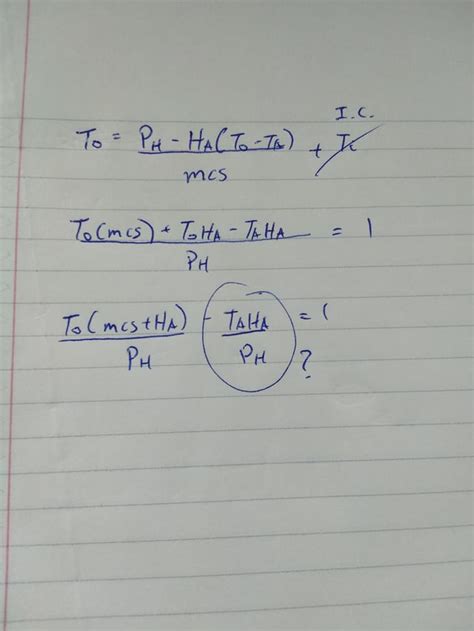 I.C.
T₀ = P_H - H_A(T₀ - T_A) / mcs + Tᵢ
T₀(mcs) + T₀H_A - T_AH_A / P_H = 1
T₀(mcs+H_A) / P_H - T_AH_A / P_H = 1
?